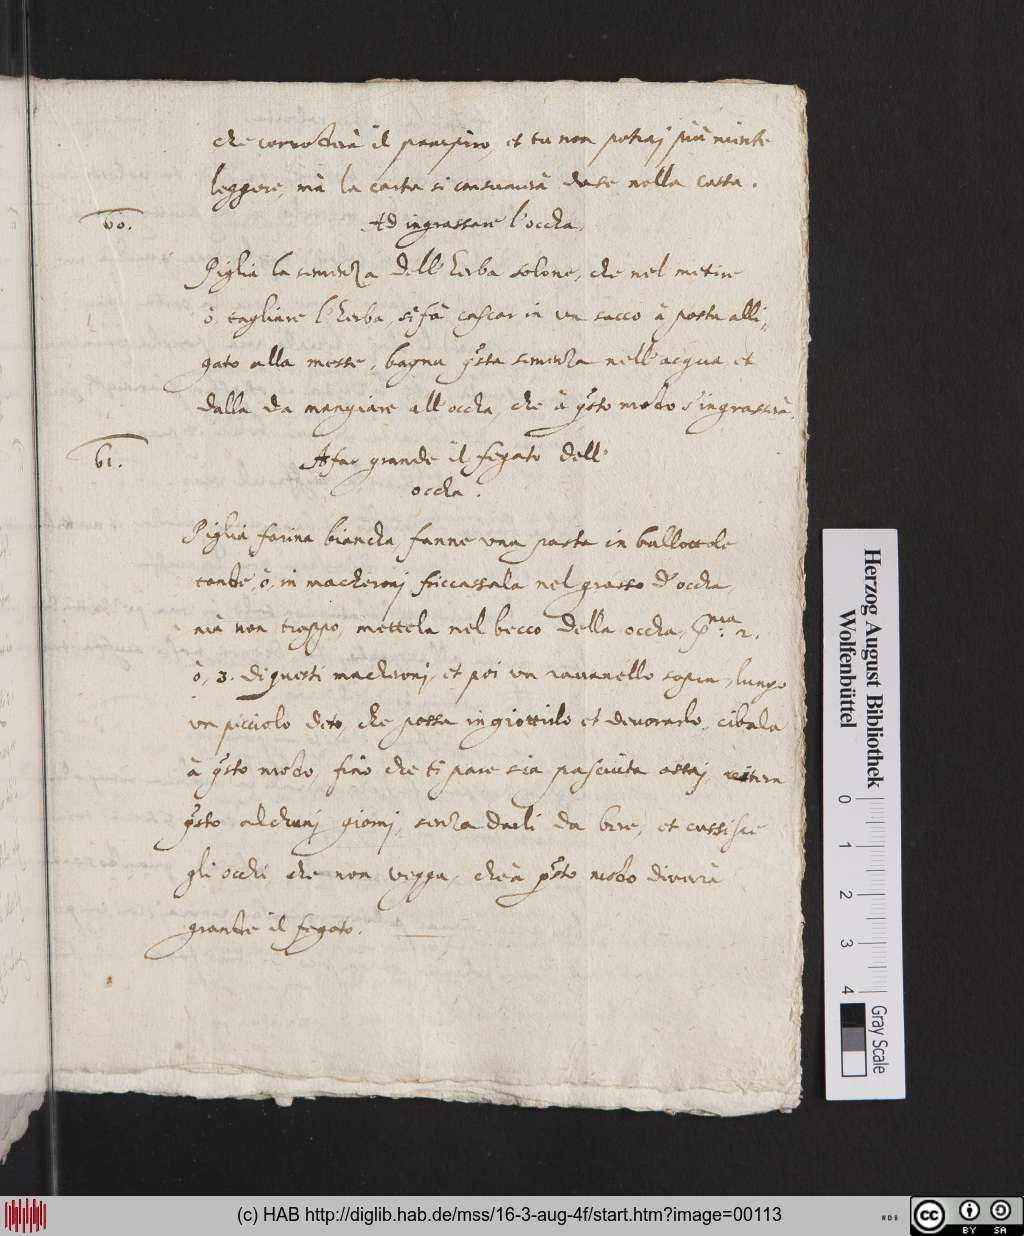 che corroderà il pampiro, et tu non potraj più niente
leggere, mà la carta si conseruarà da se nella casta.
60.
Ad ingrassare l'occha.
Piglia la semenza dell'herba solone, che nel metire
ò tagliare l'herba, si fà cascar in un sacco à posta alli-
gato alla messe, bagna qsta semenza nell'acqua et
dalla da mangiare all'occha, che à qsto modo s'ingrasserà.
61.
A far grande il fegato dell'
occha.
Piglia farina biancha, fanne una pasta in ballottole
tonde, ò, in macheronj friccassala nel grasso d'occha,
mà non troppo, mettela nel becco della occha, pma: 2.
ò, 3. di questi macheronj, et poi un rauanello sopra, lungo
un picciolo deto, che possa ingiottirlo et deuorarlo, cibala
à qsto modo, fino che ti pare sia pasciuta assaj, reitera
qsto alchunj giornj, senza darli da bere, et cussisce
gli occhi, che non vegga, che à qsto modo diuerrà
grande il fegato.
Herzog August Bibliothek
Wolfenbüttel
0 1 2 3 4
Gray Scale
(c) HAB http://diglib.hab.de/mss/16-3-aug-4f/start.htm?image=00113
cc BY SA